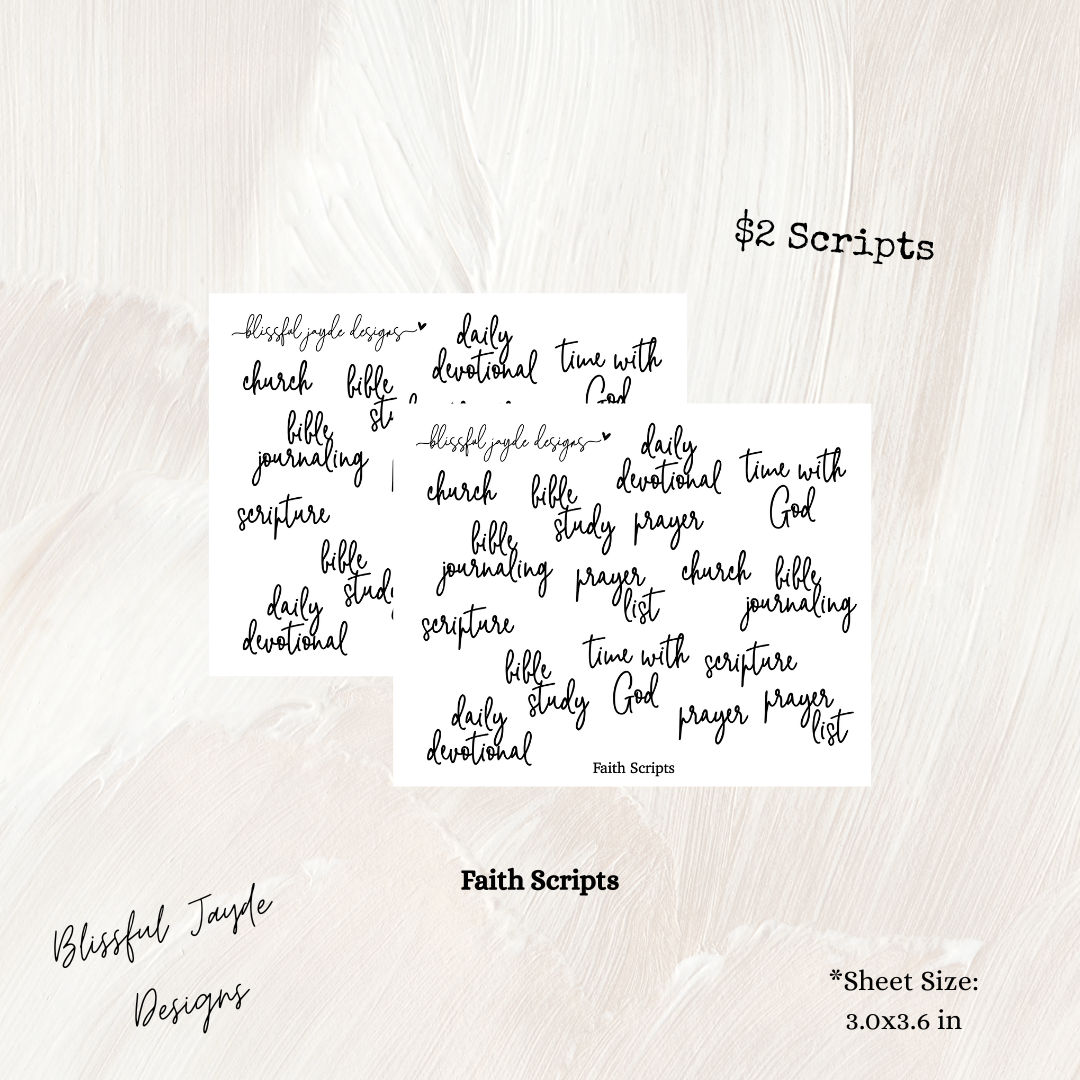 $2 Scripts
blissful jayde designs
daily
devotional
time with
God
church
bible
bible
journaling
scripture
bible
daily
devotional
blissful jayde designs
daily
devotional
time with
God
church
bible
study
prayer
bible
journaling
prayer
list
church
bible
journaling
scripture
bible
study
time with
God
scripture
daily
devotional
prayer
prayer
list
Faith Scripts
Faith Scripts
Blissful Jayde
Designs
*Sheet Size:
3.0x3.6 in